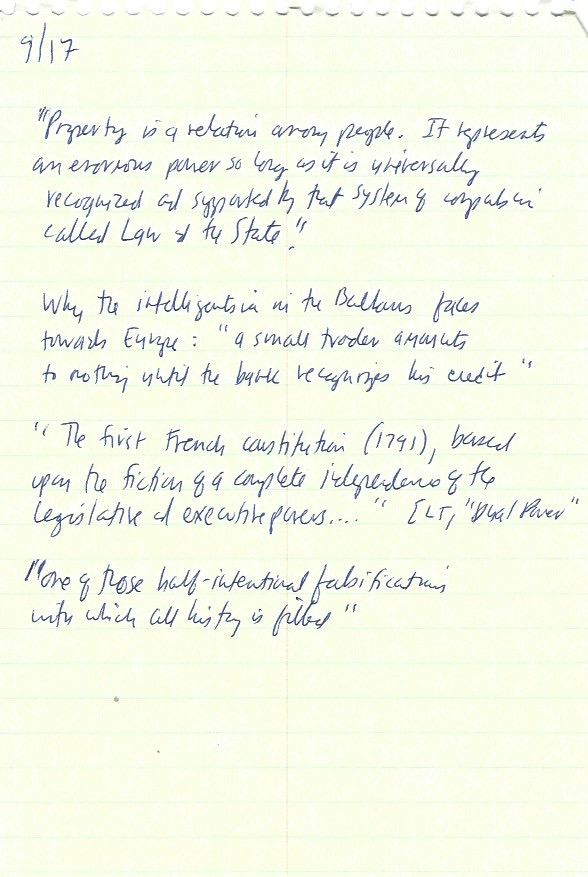 9/17
"Property is a relation among people. It represents
an enormous power so long as it is universally
recognized and supported by that system of compulsion
called Law & the State."
Why the intelligentsia in the Balkans faces
towards Europe: "a small trader amounts
to nothing until the bank recognizes his credit"
"The first French constitution (1791), based
upon the fiction of a complete independence of the
legislative and executive powers...." [LT, "Dual Power"
"one of those half-intentional falsifications
with which all history is filled"